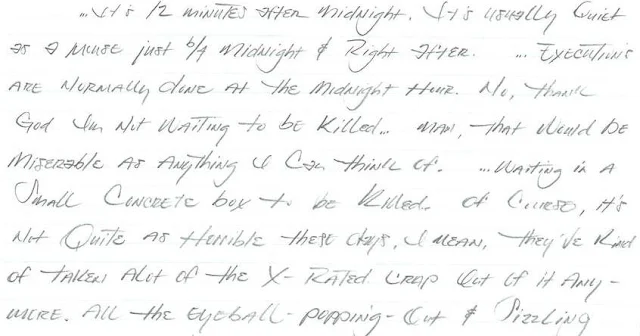 ...It's 12 minutes after midnight. It's usually Quiet
as a mouse just b/4 midnight & Right after. ... Executions
are normally done at the midnight hour. No, thank
God I'm not waiting to be killed... man, that would be
miserable as anything I can think of. ...waiting in a
small concrete box to be killed. of course, it's
not Quite as Horrible these days, I mean, they've kind
of taken alot of the X-Rated crap out of it any-
more. All the eyeball-popping-out & sizzling